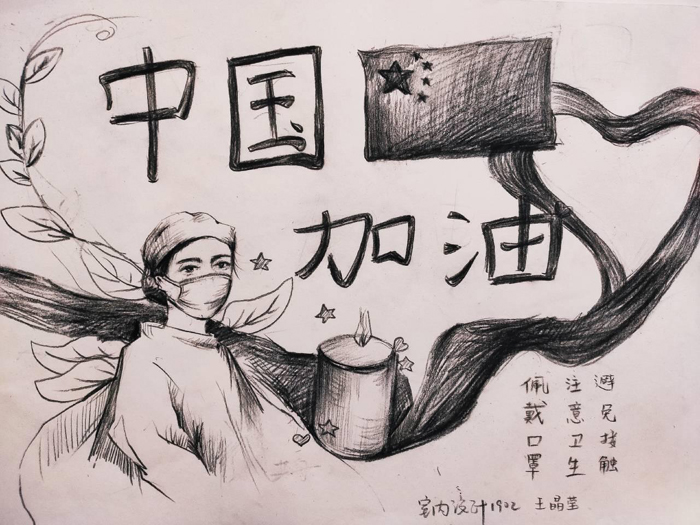 中国
加油
避免接触
注意卫生
佩戴口罩
室内设计1902 王晶莹